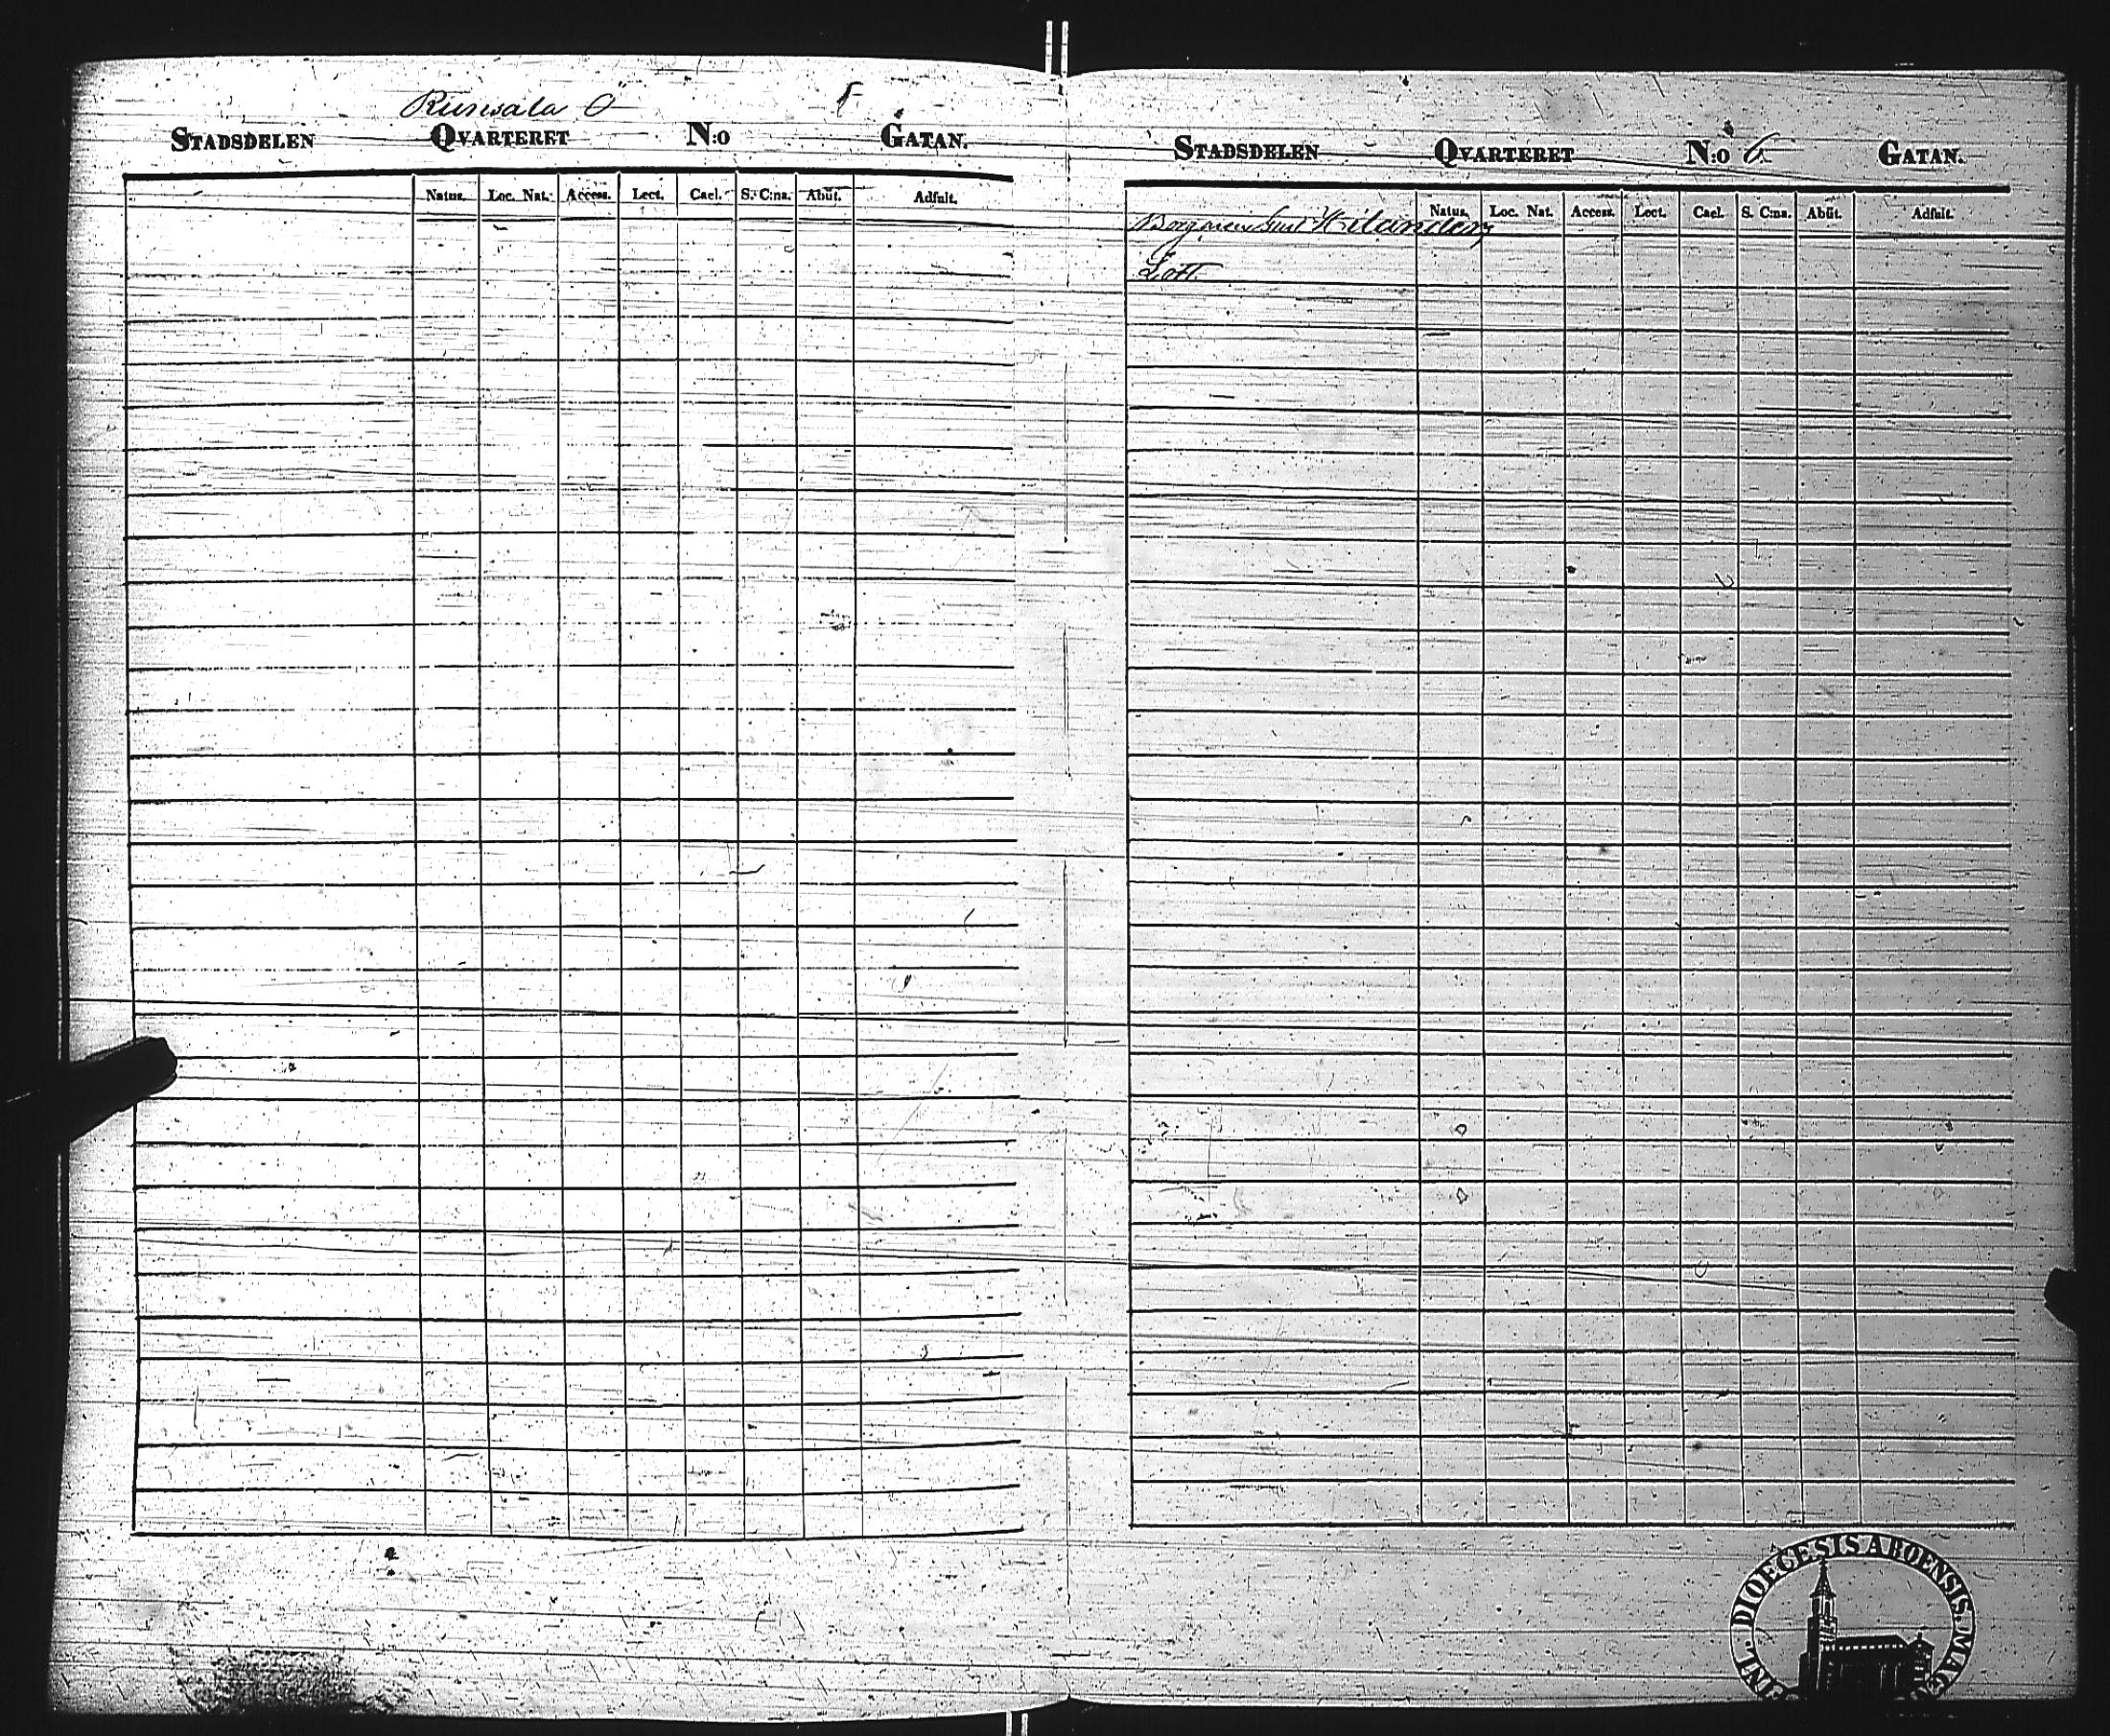 STADSDELEN QVARTERET N:o GATAN.
Natus. Loc. Nat. Access. Lect. Cael. S. C:na. Abiit. Adfuit.
STADSDELEN QVARTERET N:o 6 GATAN.
Natus. Loc. Nat. Access. Lect. Cael. S. C:na. Abiit. Adfuit.
Borgaren Gust Hilanders
DIOECESIS ABOENSIS. MAG